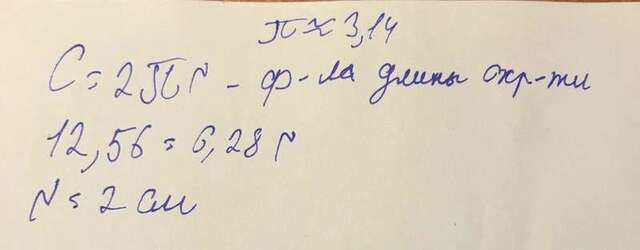 π ≈ 3,14
C = 2πr - ф-ла длины окр-ти
12,56 = 6,28 r
r = 2 см